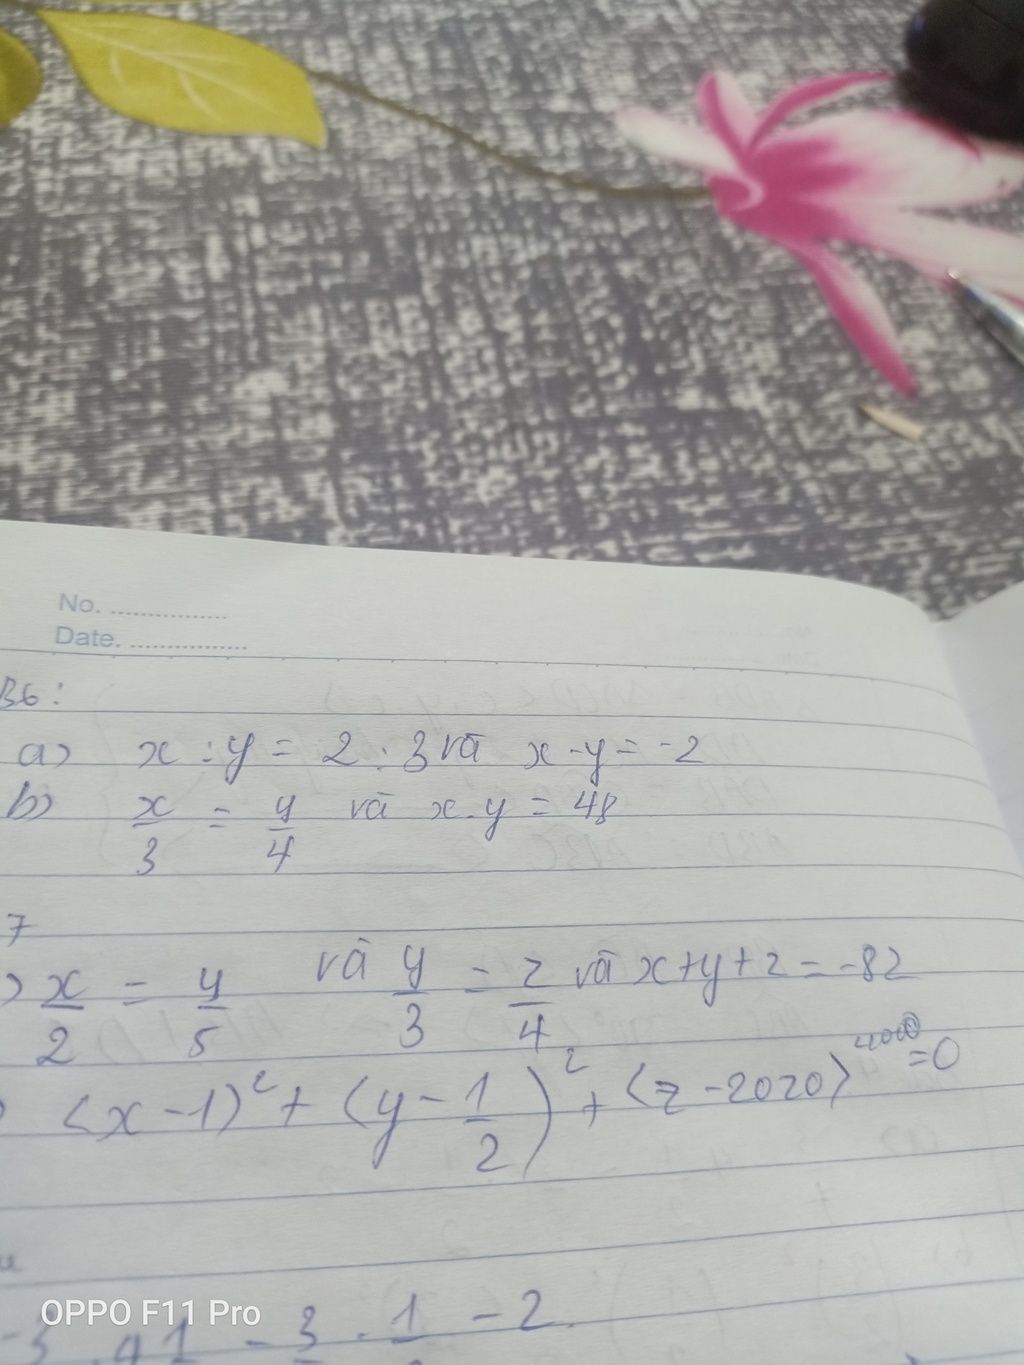 No. ...............
Date. ...............
B6:
a) x : y = 2 : 3 và x - y = -2
b) x/3 = y/4 và x.y = 48
7
) x/2 = y/5 và y/3 = z/4 và x+y+z = -82
) (x - 1)² + (y - 1/2)² + (z - 2020)⁴⁰⁰⁰ = 0
OPPO F11 Pro